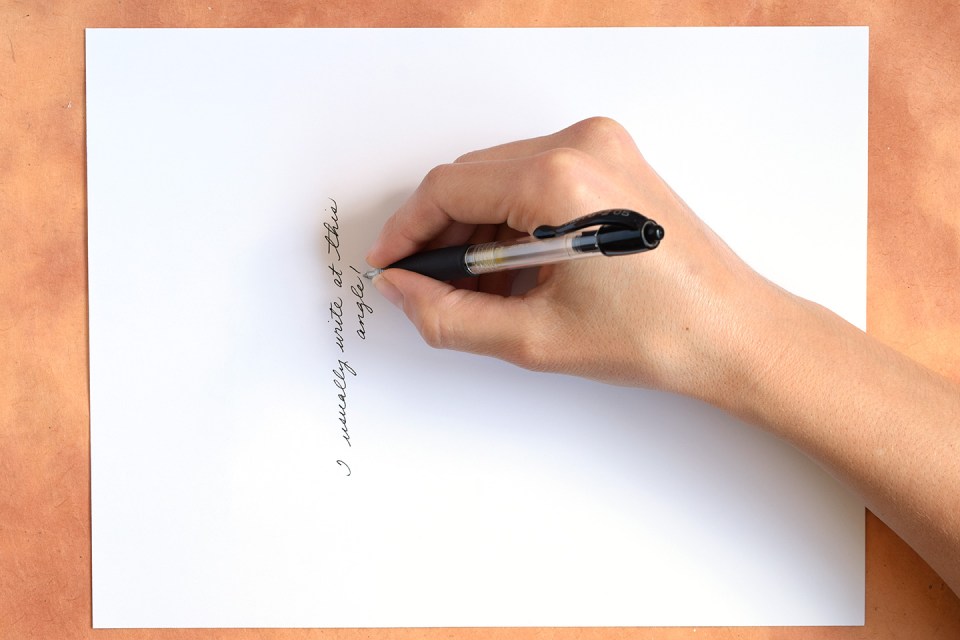 I usually write at this
angle!